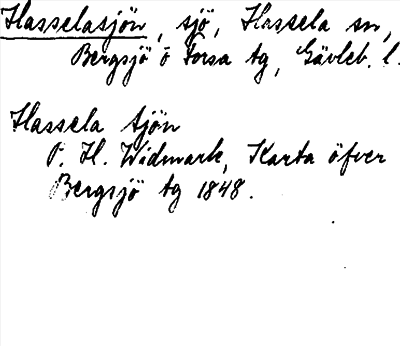 Hasselasjön, sjö, Hassela sn,
Bergsjö o Forsa tg, Gävleb. l.
Hassela Sjön
P. H. Widmark, Karta öfver
Bergsjö tg 1848.